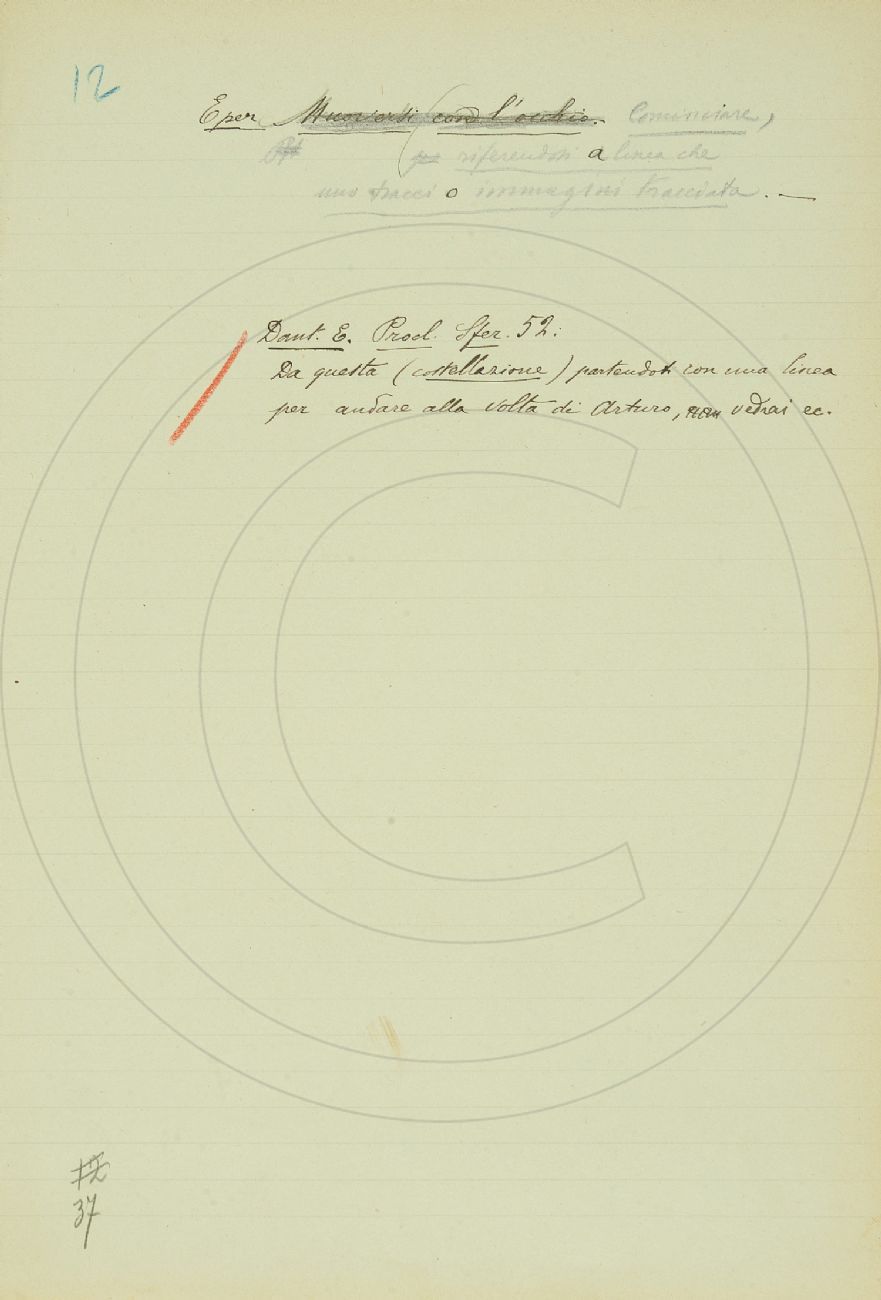 12
E per Muoversi con l'occhio. Cominciare,
riferendosi a linea che
uno tracci o immagini tracciata. —
Dant. E. Procl. Sfer. 52:
Da questa (costellazione) partendoti con una linea
per andare alla volta di Arturo, vedrai ec.
37